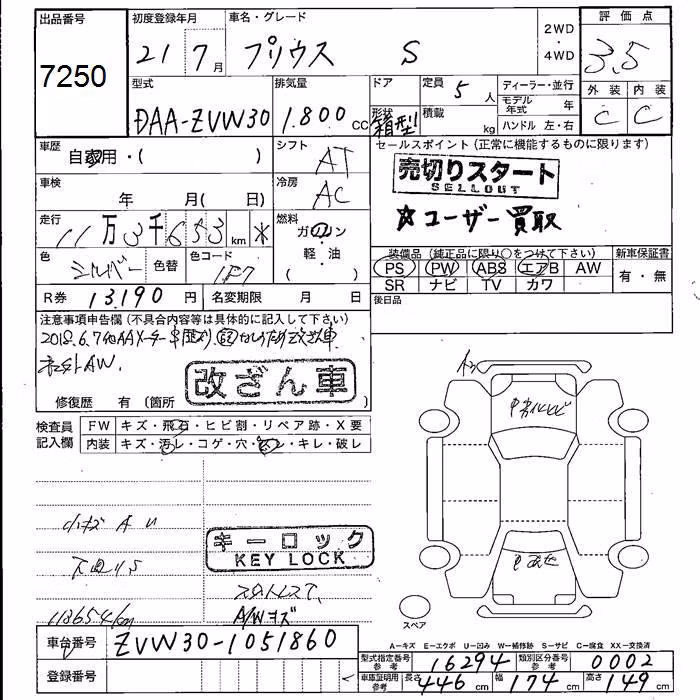 出品番号 初度登録年月 車名・グレード 2WD 評価点
7250 21 年 7月 プリウス S ・4WD 3.5
型式 排気量 ドア 定員 5人 ディーラー・並行 外装 内装
DAA-ZVW30 1.800cc 形状 箱型 積載 kg モデル年式 年 C C
ハンドル 左・右
車歴 自家用・( ) シフト AT セールスポイント (正常に機能するものに限ります)
車検 年 月( 日) 冷房 AC 売切りスタート
SELLOUT
走行 11万3千653km * 燃料 ガソリン・軽・油 ( ) ☆ユーザー買取
色 シルバー 色替 色コード 1F7 装備品(純正品に限り○をつけて下さい) 新車保証書
PS PW ABS エアB AW 有・無
SR ナビ TV カワ
R券 13,190円 名変期限 月 日 後日品
注意事項申告欄(不具合内容等は具体的に記入して下さい)
改ざん車
修復歴 有(箇所 )
検査員記入欄 FW キズ・飛石・ヒビ割・リペア跡・X要
内装 キズ・汚レ・コゲ・穴・・キレ・破レ
小キズ A U
キーロック
KEY LOCK
下回り S
113654km
A/Wキズ
スペア
A-キズ E-エクボ U-凹み W-補修跡 S-サビ C-腐食 XX-交換済
車台番号 ZVW30-1051860
登録番号
型式指定番号 参考 16294 類別区分番号 参考 0002
車庫証明用 参考 長さ 446cm 幅 174cm 高さ 149cm